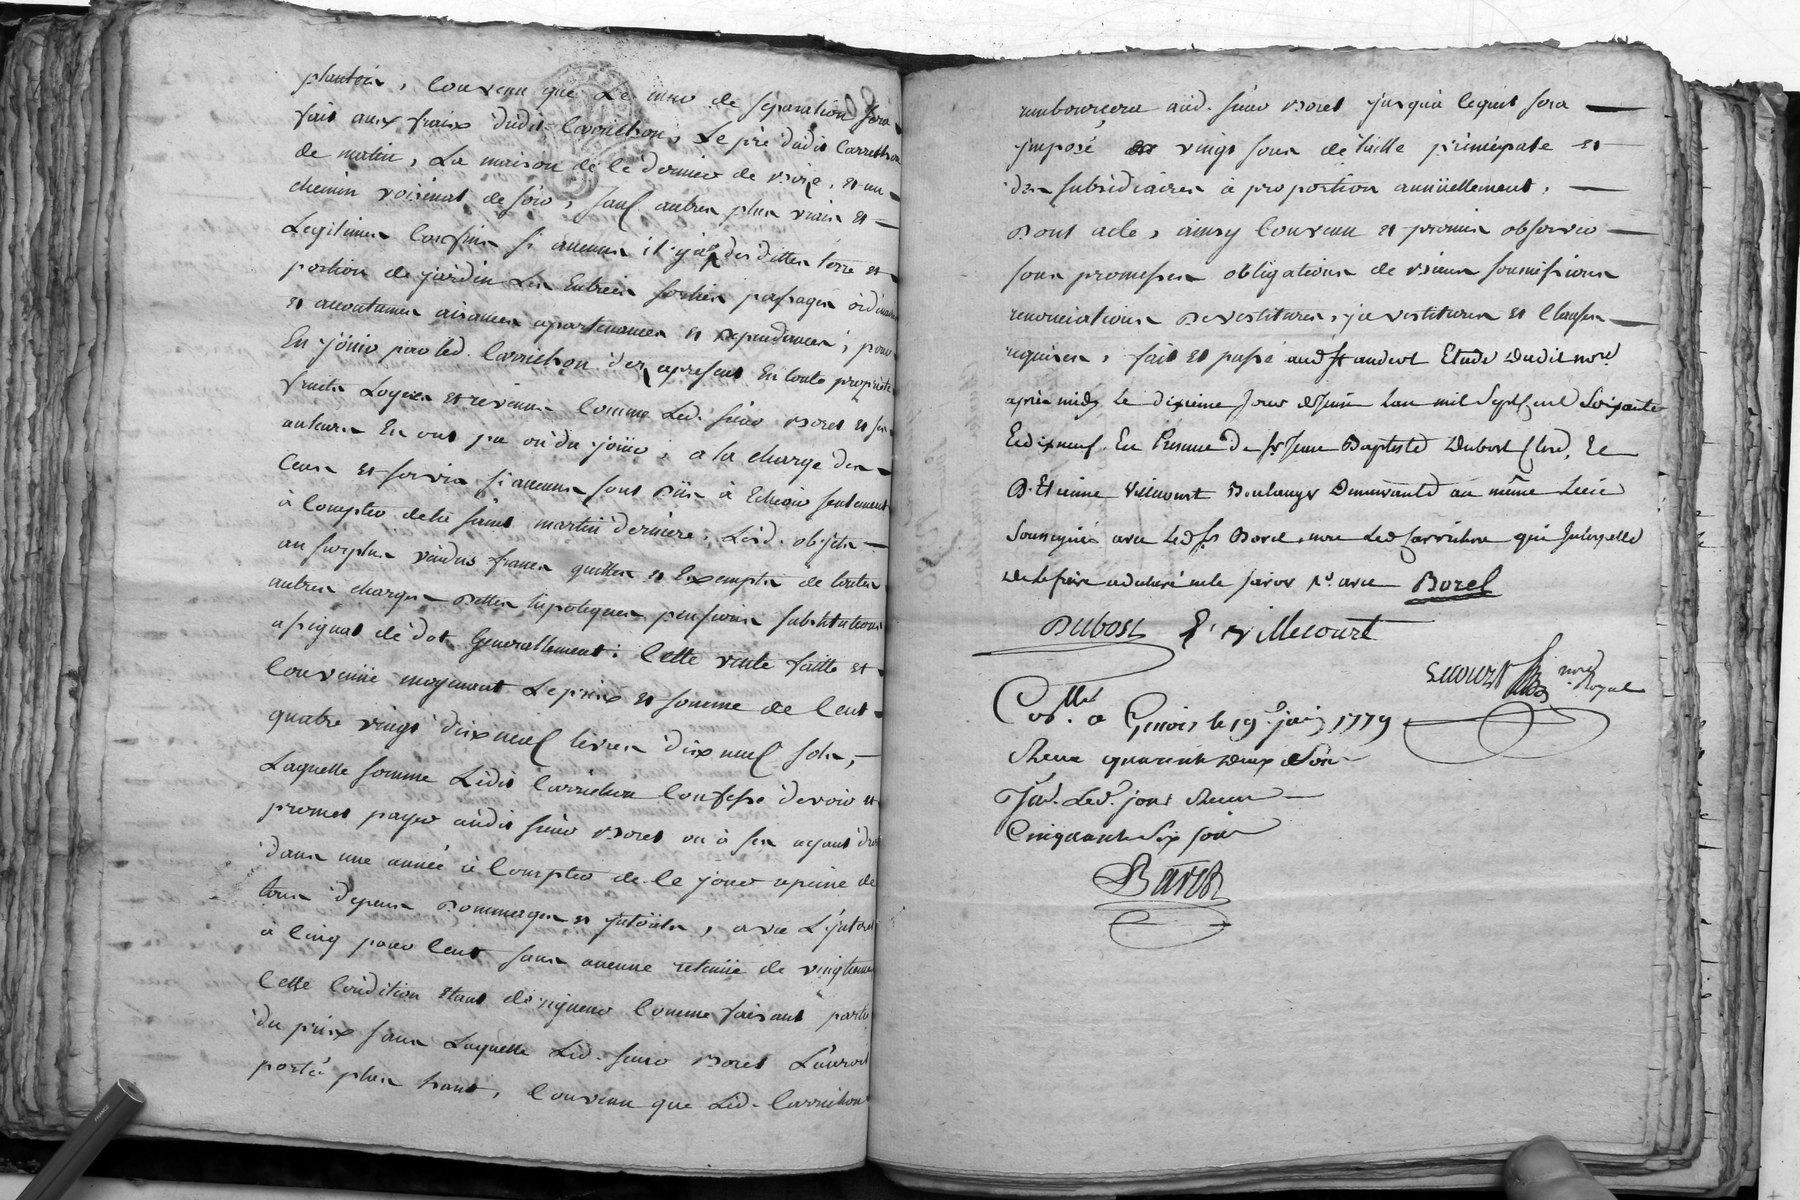 convenu que le mur de séparation sera
fait aux fraix dudit Carrichon, Le pré dudit Carrichon
de matin, La maison de le dernier de bize, et un
chemin voisinal de soir, sauf autres plus vrais et
Legitimes Confins si aucuns il y a, des dittes terre et
portion de jardin Les Entrées sorties passages ordinaires
et accoutumés aisances apartenances et dependances, pour
En jouir par led. Carrichon des apresent En toute proprieté
fruits Loyers et revenus Comme Led. sieur Borel et ses
auteurs En ont pu ou du joüir, a la charge des
Cens et servis si aucuns sont dus à Echoir seulement
à Compter de la saint martin derniere, Lesd. objets
au surplus vendus francs quittes et Exempts de toutes
autres charges dettes hipoteques pensions substitutions
assignat de dot Generallement: Cette vente faitte et
Convenüe moyenant Le prix et somme de Cent
quatre vingt dix neuf livres dix neuf sols,
Laquelle somme Ledit Carrichon Confesse devoir et
promet payer audit sieur Borel ou à ses ayant droit
dans une année à Compter de ce jour apeine de
tous depens dommages et jnterets, avec L'jnteret
à Cinq pour Cent sans aucune retenüe de vingtieme
Cette Condition etant de rigueur Comme faisant partie
du prix sans Laquelle Led. sieur Borel L'auroit
porté plus haut, Convenu que Led. Carrichon
remboursera aud. sieur Borel jusqua lequel sera
jmposé vingt sous de taille principale et
des subsidiaires à proportion annüellement.
Dont acte, ainsy Convenu et promis observer
sous promesses obligations de biens soumissions
renonciations Devestitures, jnvestitures et Clauses
requises, fait et passé Etude dudit nore
après midy le dixieme jour de juin Lan mil Sept Cent Soixante
Et dix neuf. En Presence de Sr Jean Baptiste Dubost Clerc, Et
d'Etienne Villecourt Boulanger Demeurants au même Lieu
Soussignés avec Led. Sr Borel, non Led. Carrichon qui Interpellé
de le faire a declaré ne le savoir Borel
DUBOST E. Villecourt
nore Royal
Collé a le 19e juin 1779
Receu quarante deux Sols
Led. jour Receu
Cinquante Six sols